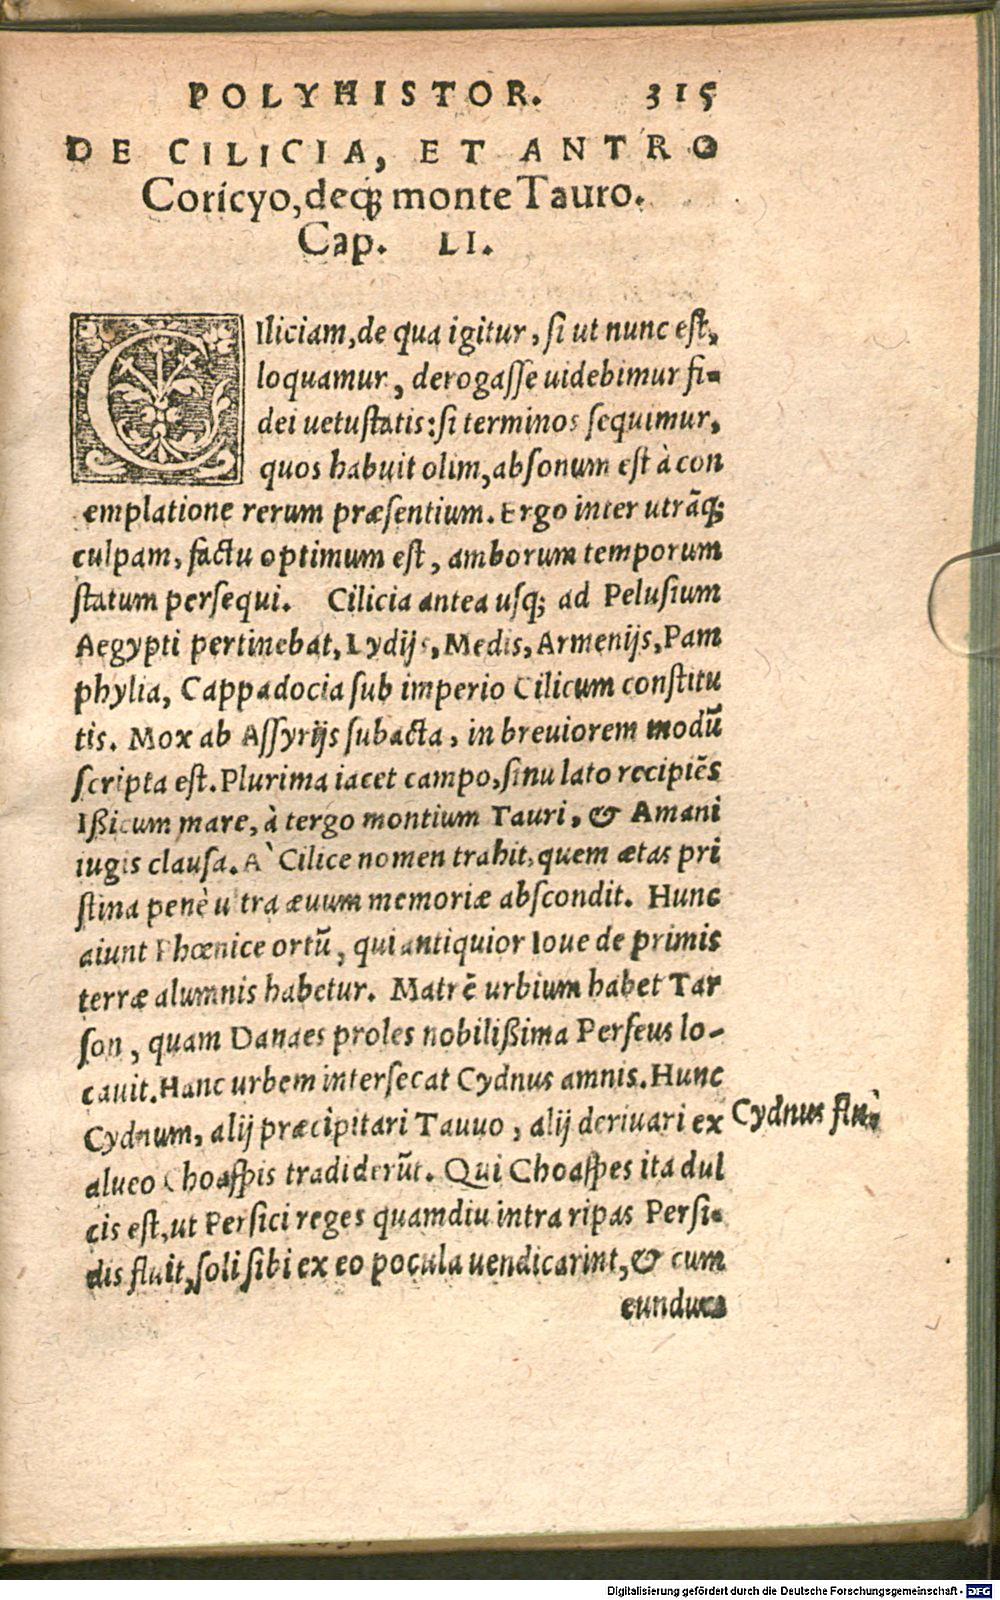 POLYHISTOR. 315
DE CILICIA, ET ANTRO
Coricyo, deq́; monte Tauro.
Cap. LI.
CIliciam, de qua igitur, si ut nunc est,
loquamur, derogasse uidebimur fi-
dei uetustatis: si terminos sequimur,
quos habuit olim, absonum est à con
emplatione rerum præsentium. Ergo inter utrãq;
culpam, factu optimum est, amborum temporum
statum persequi. Cilicia antea usq; ad Pelusium
Aegypti pertinebat, Lydijs, Medis, Armenijs, Pam
phylia, Cappadocia sub imperio Cilicum constitu
tis. Mox ab Assyrijs subacta, in breuiorem modũ
scripta est. Plurima iacet campo, sinu lato recipiẽs
Ißicum mare, à tergo montium Tauri, & Amani
iugis clausa. A` Cilice nomen trahit, quem ætas pri
stina penè ultra æuum memoriæ abscondit. Hunc
aiunt Phœnice ortũ, qui antiquior Ioue de primis
terræ alumnis habetur. Matrẽ urbium habet Tar
son, quam Danaes proles nobilißima Perseus lo-
cauit. Hanc urbem intersecat Cydnus amnis. Hunc
Cydnum, alij præcipitari Tauuo, alij deriuari ex
Cydnus flu:
alueo Choaspis tradiderũt. Qui Choaspes ita dul
cis est, ut Persici reges quamdiu intra ripas Persi-
dis fluit, soli sibi ex eo pocula uendicarint, & cum
eundum
Digitalisierung gefördert durch die Deutsche Forschungsgemeinschaft - DFG